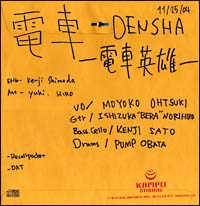 11/25/04
電車 - DENSHA
-電車英雄-
Eng- Kenji Shimoda
Ast - yuki. Hino
VO/ MOYOKO OHTSUKI
Gtr/ISHIZUKA "BERA" NORIHIRO
Bass.Cello/KENJI SATO
Drums/ PUMP OBATA
-DAT
KAMPO
STUDIOS